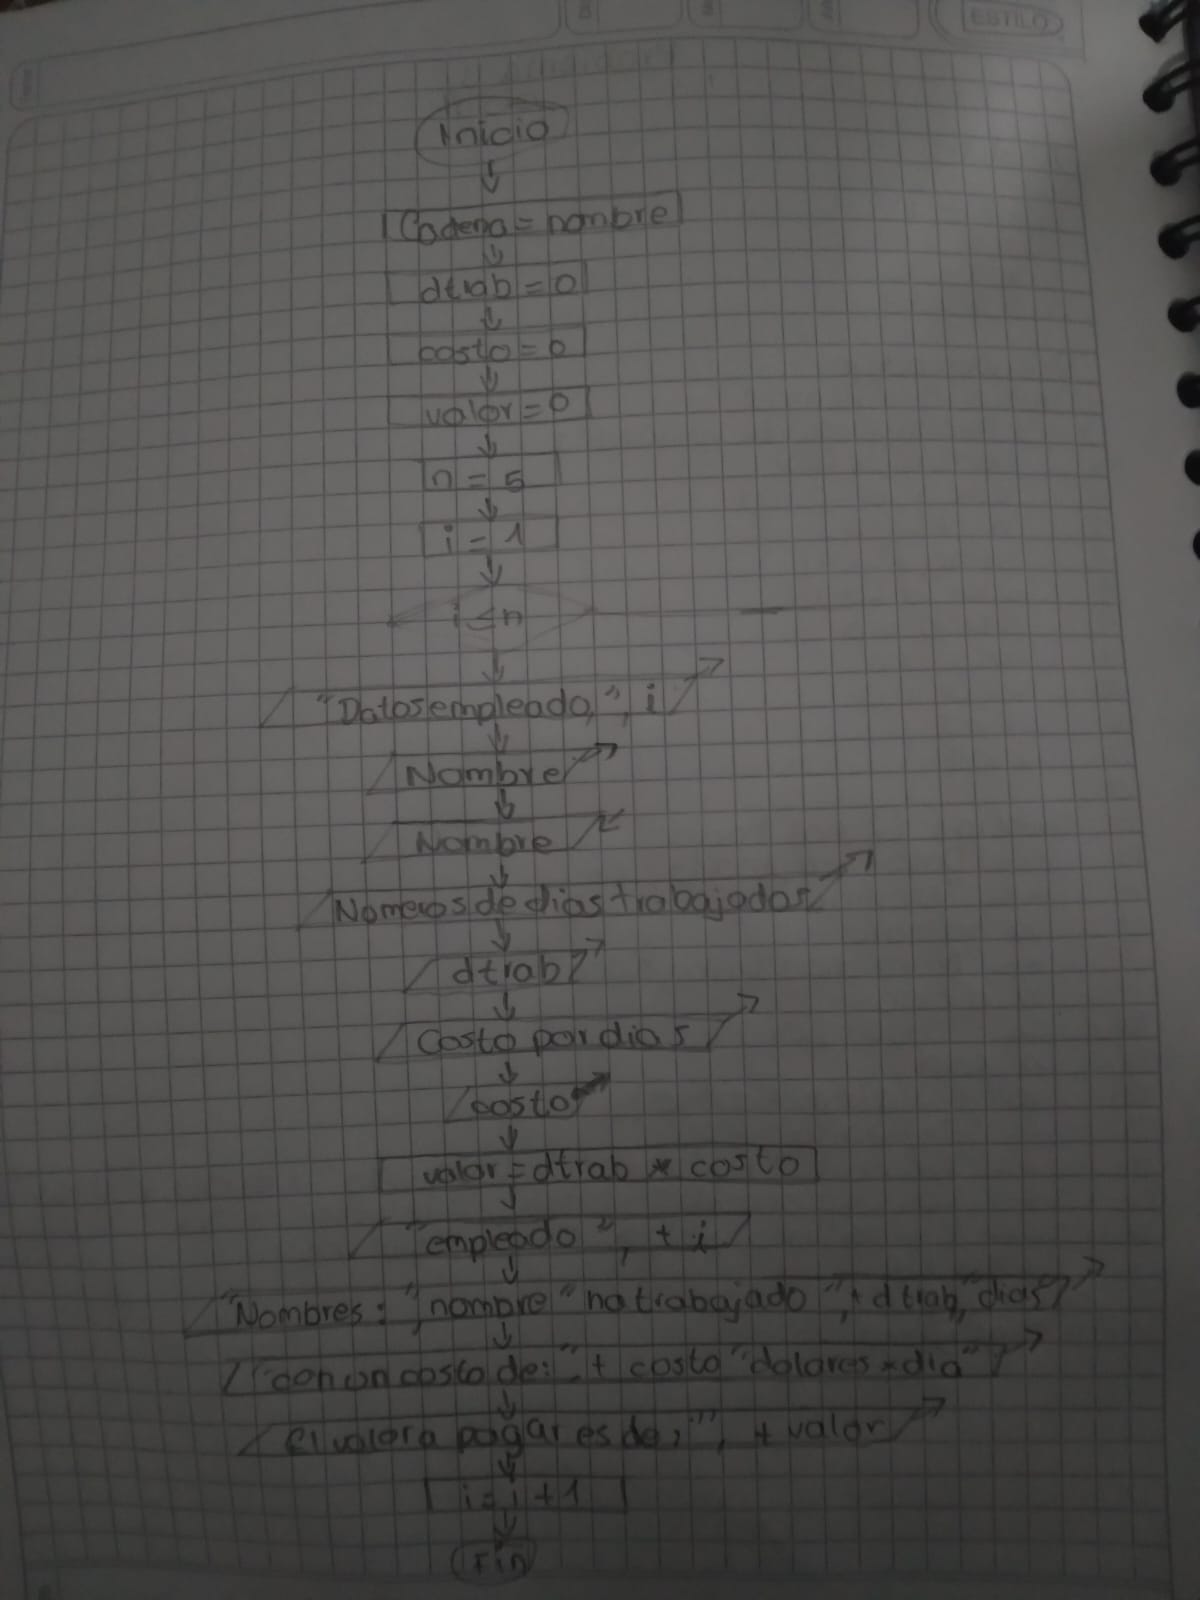 ESTILO
Inicio
Cadena = nombre
dtrab = 0
costo = 0
valor = 0
n = 5
i = 1
i ≤ n
"Datos empleado,", i
Nombre
Nombre
Numeros de dias trabajados
dtrab
Costo por dias
costo
valor = dtrab * costo
"empleado ", + i
"Nombres: ", nombre "ha trabajado ", + dtrab, "dias"
"con un costo de: ", + costo "dolares * dia"
El valor a pagar es de: ", + valor
i = i + 1
Fin